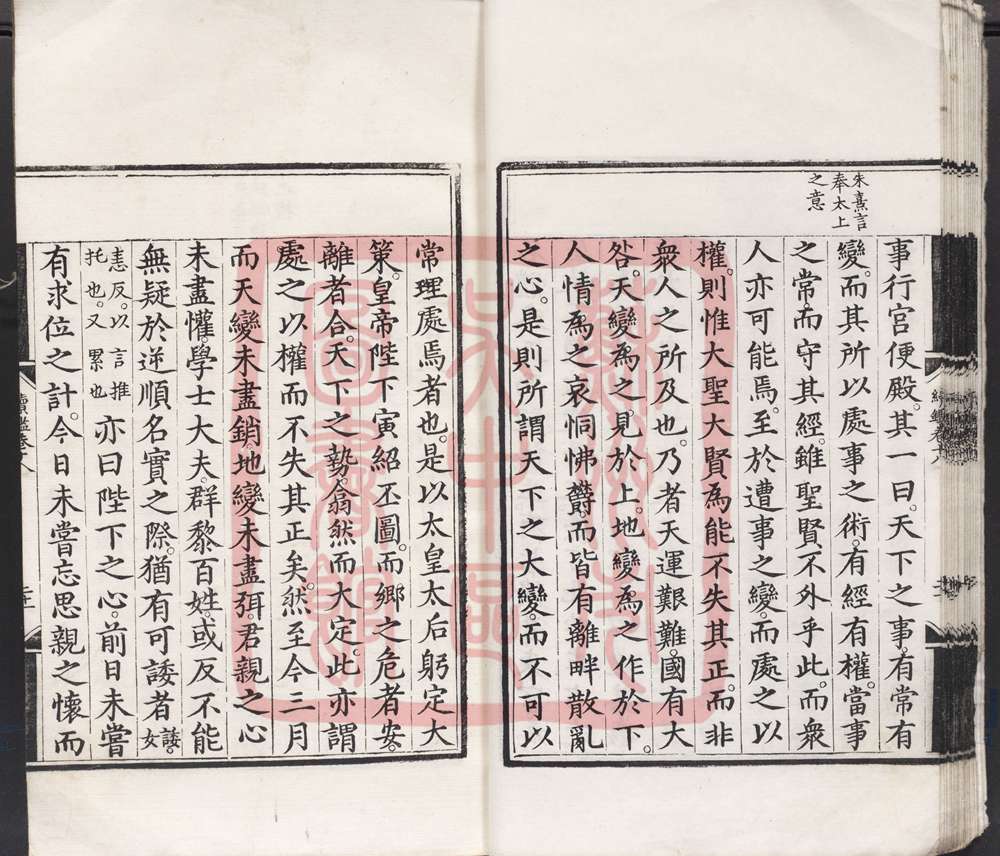 朱熹言
奉太上
之意
事行宮便殿。其一曰。天下之事。有常有
變。而其所以處事之術。有經有權。當事
之常。而守其經。雖聖賢不外乎此。而衆
人亦可能焉。至於遭事之變。而處之以
權。則惟大聖大賢爲能不失其正。而非
衆人之所及也。乃者天運艱難。國有大
咎。天變爲之見於上。地變爲之作於下。
人情爲之哀恫怫鬱。而皆有離畔散亂
之心。是則所謂天下之大變。而不可以
常理處焉者也。是以太皇太后躬定大
策。皇帝陛下寅紹丕圖。而鄉之危者安。
離者合。天下之勢。翕然而大定。此亦謂
處之以權而不失其正矣。然至今三月
而天變未盡銷。地變未盡弭。君親之心
未盡懽。學士大夫。群黎百姓。或反不能
無疑於逆順名實之際。猶有可諉者諉。女
恚反。以言推
托也。又累也
亦曰陛下之心。前日未嘗
有求位之計。今日未嘗忘思親之懷而